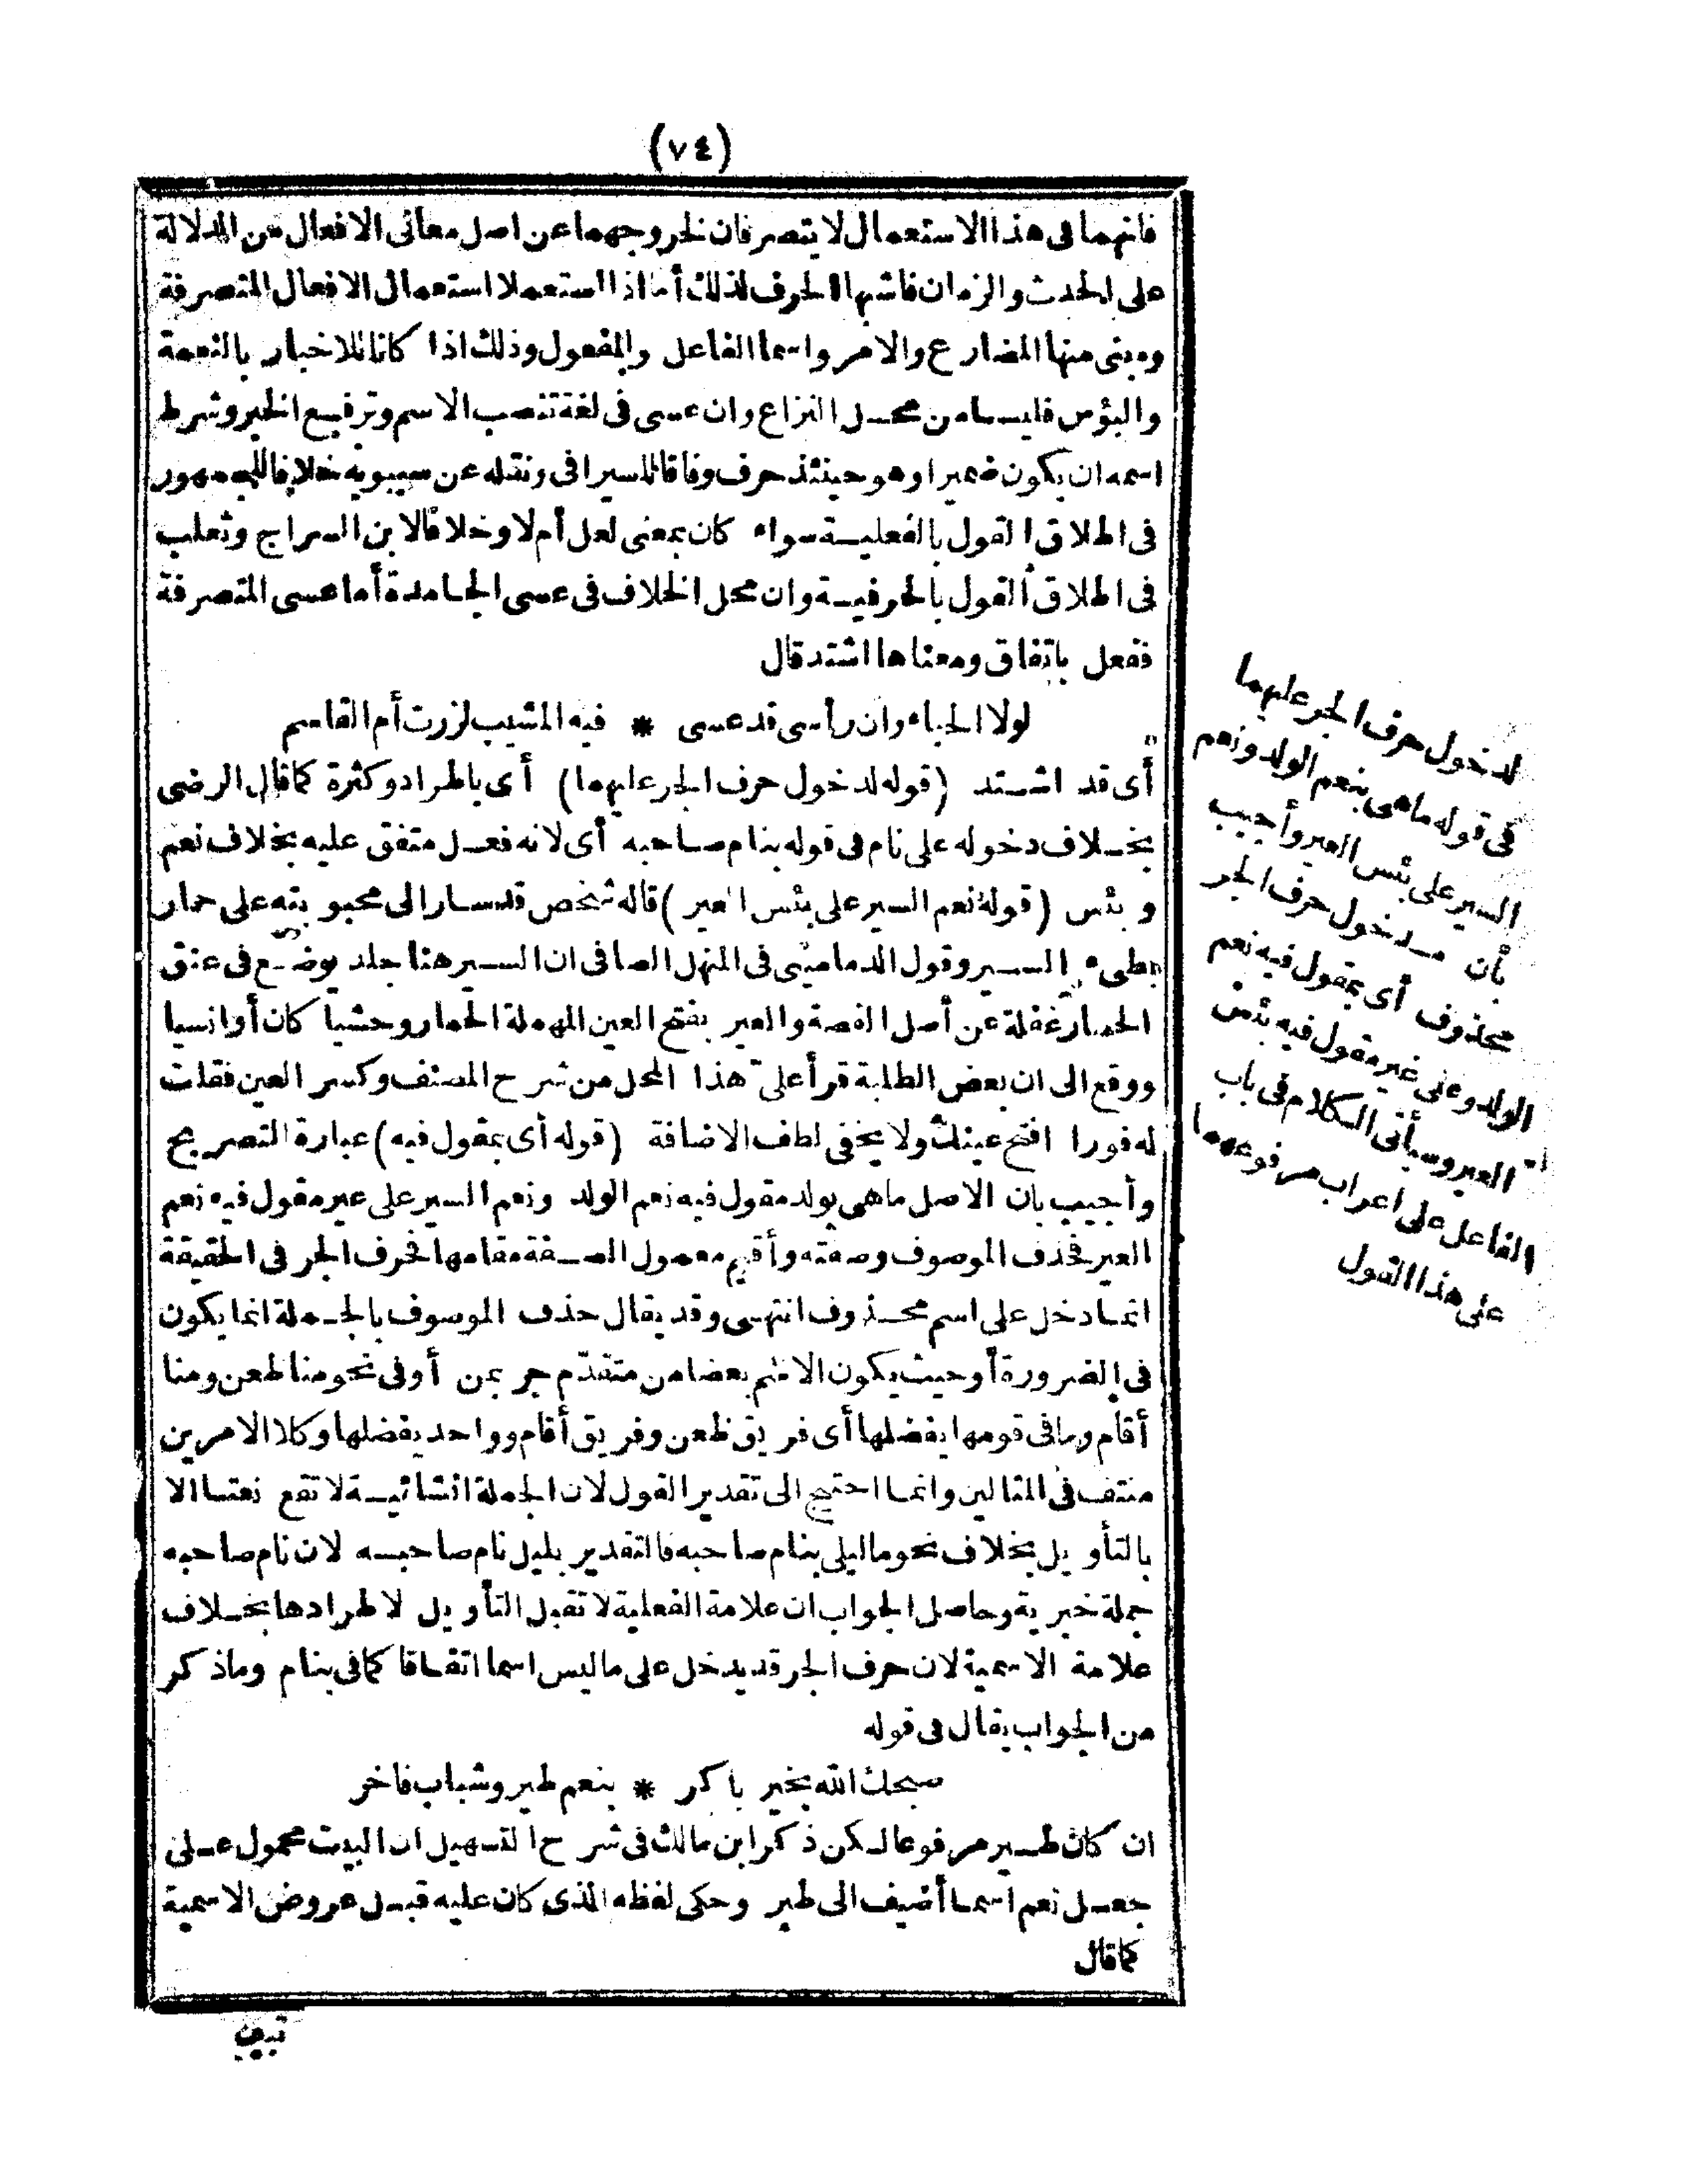 (٧٤)
فانهما فى هذا الاستعمال لا يتصرفان لخروجهما عن اصل معانى الافعال من الدلالة
على الحدث والزمان فاشبها الحرف لذلك أما اذا استعملا استعمال الافعال المتصرفة
ويبنى منها المضارع والامر واسما الفاعل والمفعول وذلك اذا كانا للاخبار بالنعمة
والبؤس فليسا من محل النزاع وان عسى فى لغة تنصب الاسم وترفع الخبر وشرط
اسمه ان يكون ضميرا وهو حينئذ حرف وفاقا للسيرافى ونقله عن سيبويه خلافا للجمهور
فى اطلاق القول بالفعلية سواء كان بمعنى لعل أم لا وخلافا لابن السراج وثعلب
فى اطلاق القول بالحرفية وان محل الخلاف فى عسى الجامدة أما عسى المتصرفة
ففعل باتفاق ومعناها اشتد قال
لولا الحياء وان رأسى قد عسى * فيه المشيب لزرت أم القاسم
أى قد اشتد (قوله لدخول حرف الجر عليهما) أى باطراد وكثرة كما قال الرضى
بخلاف دخوله على نام فى قوله بنام صاحبه أى لانه فعل متفق عليه بخلاف نعم
وبئس (قوله نعم السير على بئس العير) قاله شخص قد سار الى محبوبته على حمار
بطىء السير وقول الدمامينى فى المنهل الصافى ان السير هنا جلد يوضع فى عنق
الحمار غفلة عن أصل القصة والعير بفتح العين المهملة الحمار وحشيا كان أو انسيا
ووقع الى ان بعض الطلبة قرأ على هذا المحل من شرح المصنف وكسر العين فقلت
له فورا افتح عينك ولا يخفى لطف الاضافة (قوله أى بمقول فيه) عبارة التصريح
وأجيب بان الاصل ما هى بولد مقول فيه نعم الولد ونعم السير على عير مقول فيه نعم
العير فحذف الموصوف وصفته وأقيم معمول الصفة مقامها فحرف الجر فى الحقيقة
انما دخل على اسم محذوف انتهى وقد يقال حذف الموصوف بالجملة انما يكون
فى الضرورة أو حيث يكون الاسم بعضا من متقدّم جر بمن أو فى نحو منا ظعن ومنا
أقام وما فى قومها يفضلها أى فريق ظعن وفريق أقام وواحد يفضلها وكلا الامرين
منتف فى المثالين وانما احتيج الى تقدير القول لان الجملة انشائية لا تقع نعتا الا
بالتأويل بخلاف نحو ما ليلى بنام صاحبه فالتقدير بليل نام صاحبه لان نام صاحبه
جملة خبرية وحاصل الجواب ان علامة الفعلية لا تقبل التأويل لاطرادها بخلاف
علامة الاسمية لان حرف الجر قد يدخل على ما ليس اسما اتفاقا كما فى بنام وماذكر
من الجواب يقال فى قوله
صبحك الله بخير باكر * بنعم طير وشباب فاخر
ان كان طير مرفوعا لكن ذكر ابن مالك فى شرح التسهيل ان البيت محمول على
جعل نعم اسما أضيف الى طير وحكى لفظه الذى كان عليه قبل عروض الاسمية
كما قال
لدخول حرف الجر عليهما
فى قوله ما هى بنعم الولد ونعم
السير على بئس العير وأجيب
بأن مدخول حرف الجر
محذوف أى بمقول فيه نعم
الولد وعلى عير مقول فيه بئس
العير وسيأتى الكلام فى باب
الفاعل على اعراب مرفوعهما
على هذا القول